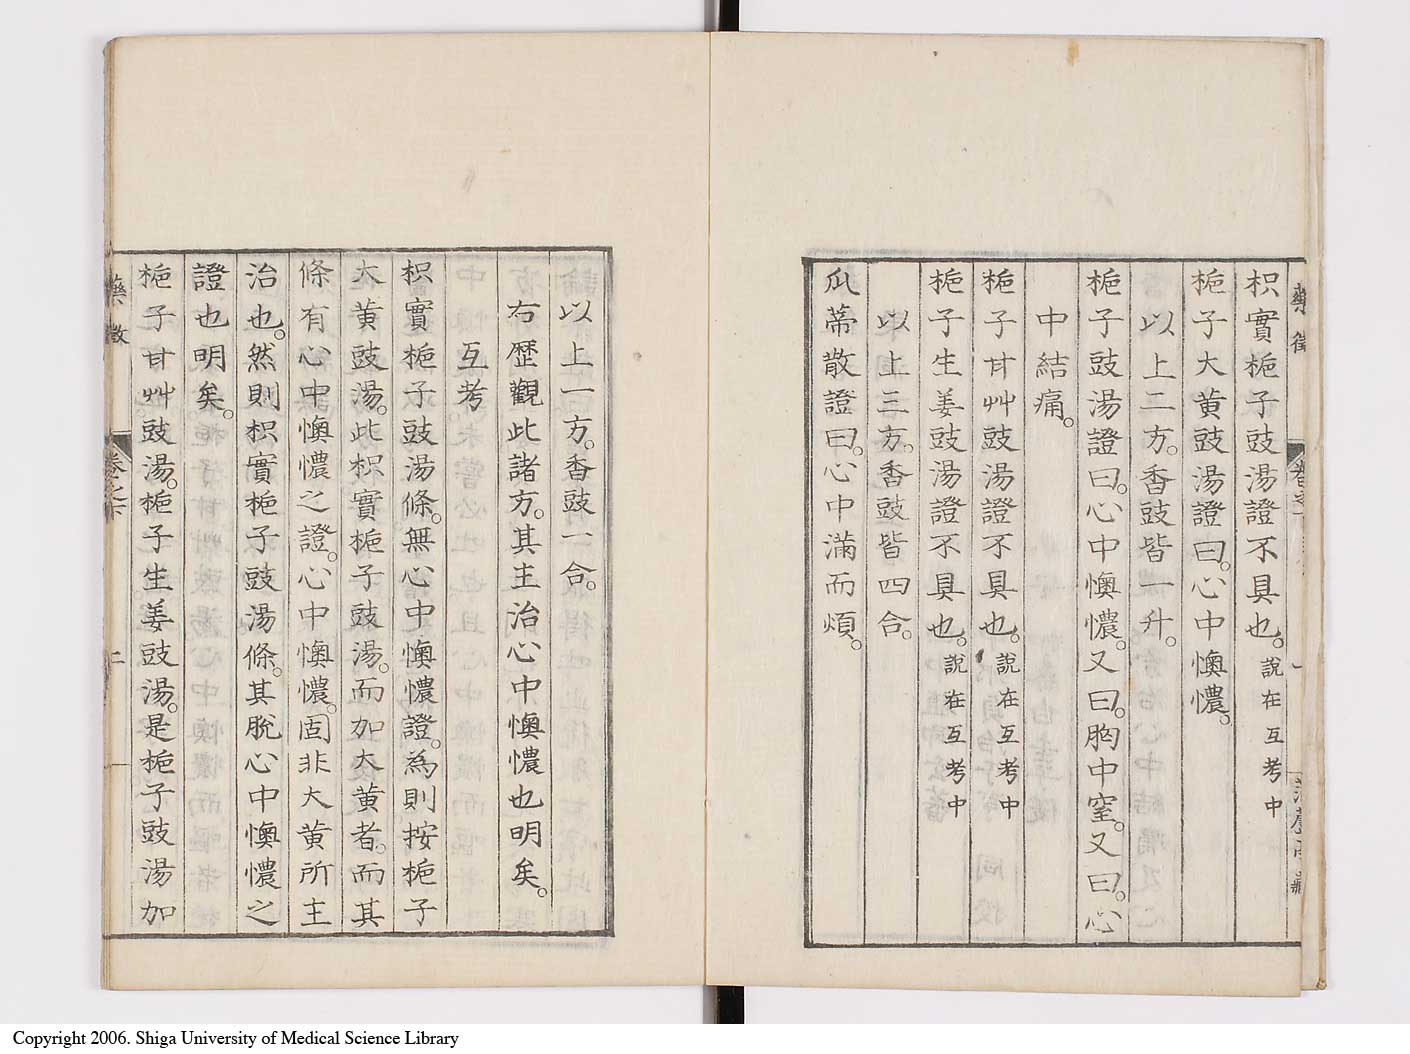 藥徵
枳實梔子豉湯證不具也。說在互考中
梔子大黃豉湯證曰。心中懊憹。
以上二方。香豉皆一升。
梔子豉湯證曰。心中懊憹。又曰。胸中窒。又曰。心
中結痛。
梔子甘艸豉湯證不具也。說在互考中
梔子生姜豉湯證不具也。說在互考中
以上三方。香豉皆四合。
瓜蒂散證曰。心中滿而煩。
以上一方。香豉一合。
右歷觀此諸方。其主治心中懊憹也明矣。
互考
枳實梔子豉湯條。無心中懊憹證。為則按梔子
大黃豉湯。此枳實梔子豉湯。而加大黃者。而其
條有心中懊憹之證。心中懊憹。固非大黃所主
治也。然則枳實梔子豉湯條。其脫心中懊憹之
證也明矣。
梔子甘艸豉湯。梔子生姜豉湯。是梔子豉湯加
藥徵 卷之下 二
Copyright 2006. Shiga University of Medical Science Library